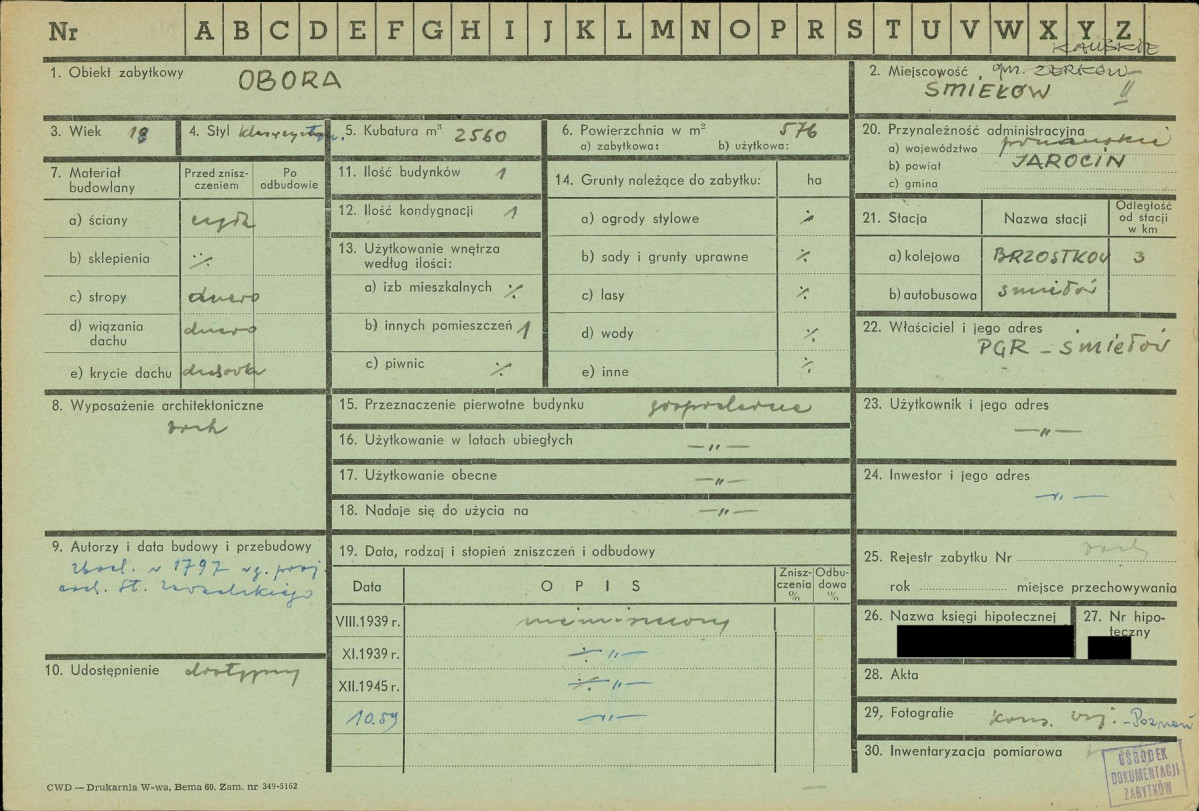 Nr A B C D E F G H I J K L M N O P R S T U V W X Y Z
1. Obiekt zabytkowy OBORA
KALISKIE
2. Miejscowość, gm. ŻERKÓW
ŚMIEŁÓW
3. Wiek 18
4. Styl klasycystyczn.
5. Kubatura m³ 2560
6. Powierzchnia w m² 576
a) zabytkowa: b) użytkowa:
20. Przynależność administracyjna
a) województwo poznańskie
b) powiat JAROCIN
c) gmina
7. Materiał budowlany
Przed zniszczeniem
Po odbudowie
a) ściany cegła
b) sklepienia ·/.
c) stropy drewno
d) wiązania dachu drewno
e) krycie dachu dachówka
11. Ilość budynków 1
12. Ilość kondygnacji 1
13. Użytkowanie wnętrza według ilości:
a) izb mieszkalnych ·/.
b) innych pomieszczeń 1
c) piwnic ·/.
14. Grunty należące do zabytku: ha
a) ogrody stylowe ·/.
b) sady i grunty uprawne ·/.
c) lasy ·/.
d) wody ·/.
e) inne ·/.
21. Stacja
Nazwa stacji
Odległość od stacji w km
a) kolejowa BRZOSTKOW 3
b) autobusowa Śmiełów
22. Właściciel i jego adres
PGR – Śmiełów
8. Wyposażenie architektoniczne
brak
15. Przeznaczenie pierwotne budynku gospodarcze
16. Użytkowanie w latach ubiegłych —„—
17. Użytkowanie obecne —„—
18. Nadaje się do użycia na —„—
23. Użytkownik i jego adres
—„—
24. Inwestor i jego adres
—„—
9. Autorzy i data budowy i przebudowy
zbud. w 1797 wg. proj.
arch. St. Zawadzkiego
10. Udostępnienie dostępny
19. Data, rodzaj i stopień zniszczeń i odbudowy
Data
OPIS
Zniszczenia %
Odbudowa %
VIII.1939 r. niezniszczony
XI.1939 r. —„—
XII.1945 r. —„—
10.59 —„—
25. Rejestr zabytku Nr brak
rok miejsce przechowywania
26. Nazwa księgi hipotecznej
27. Nr hipoteczny
28. Akta
29. Fotografie Kons. woj. – Poznań
30. Inwentaryzacja pomiarowa
OŚRODEK
DOKUMENTACJI
ZABYTKÓW
CWD — Drukarnia W-wa, Bema 60. Zam. nr 349-5162